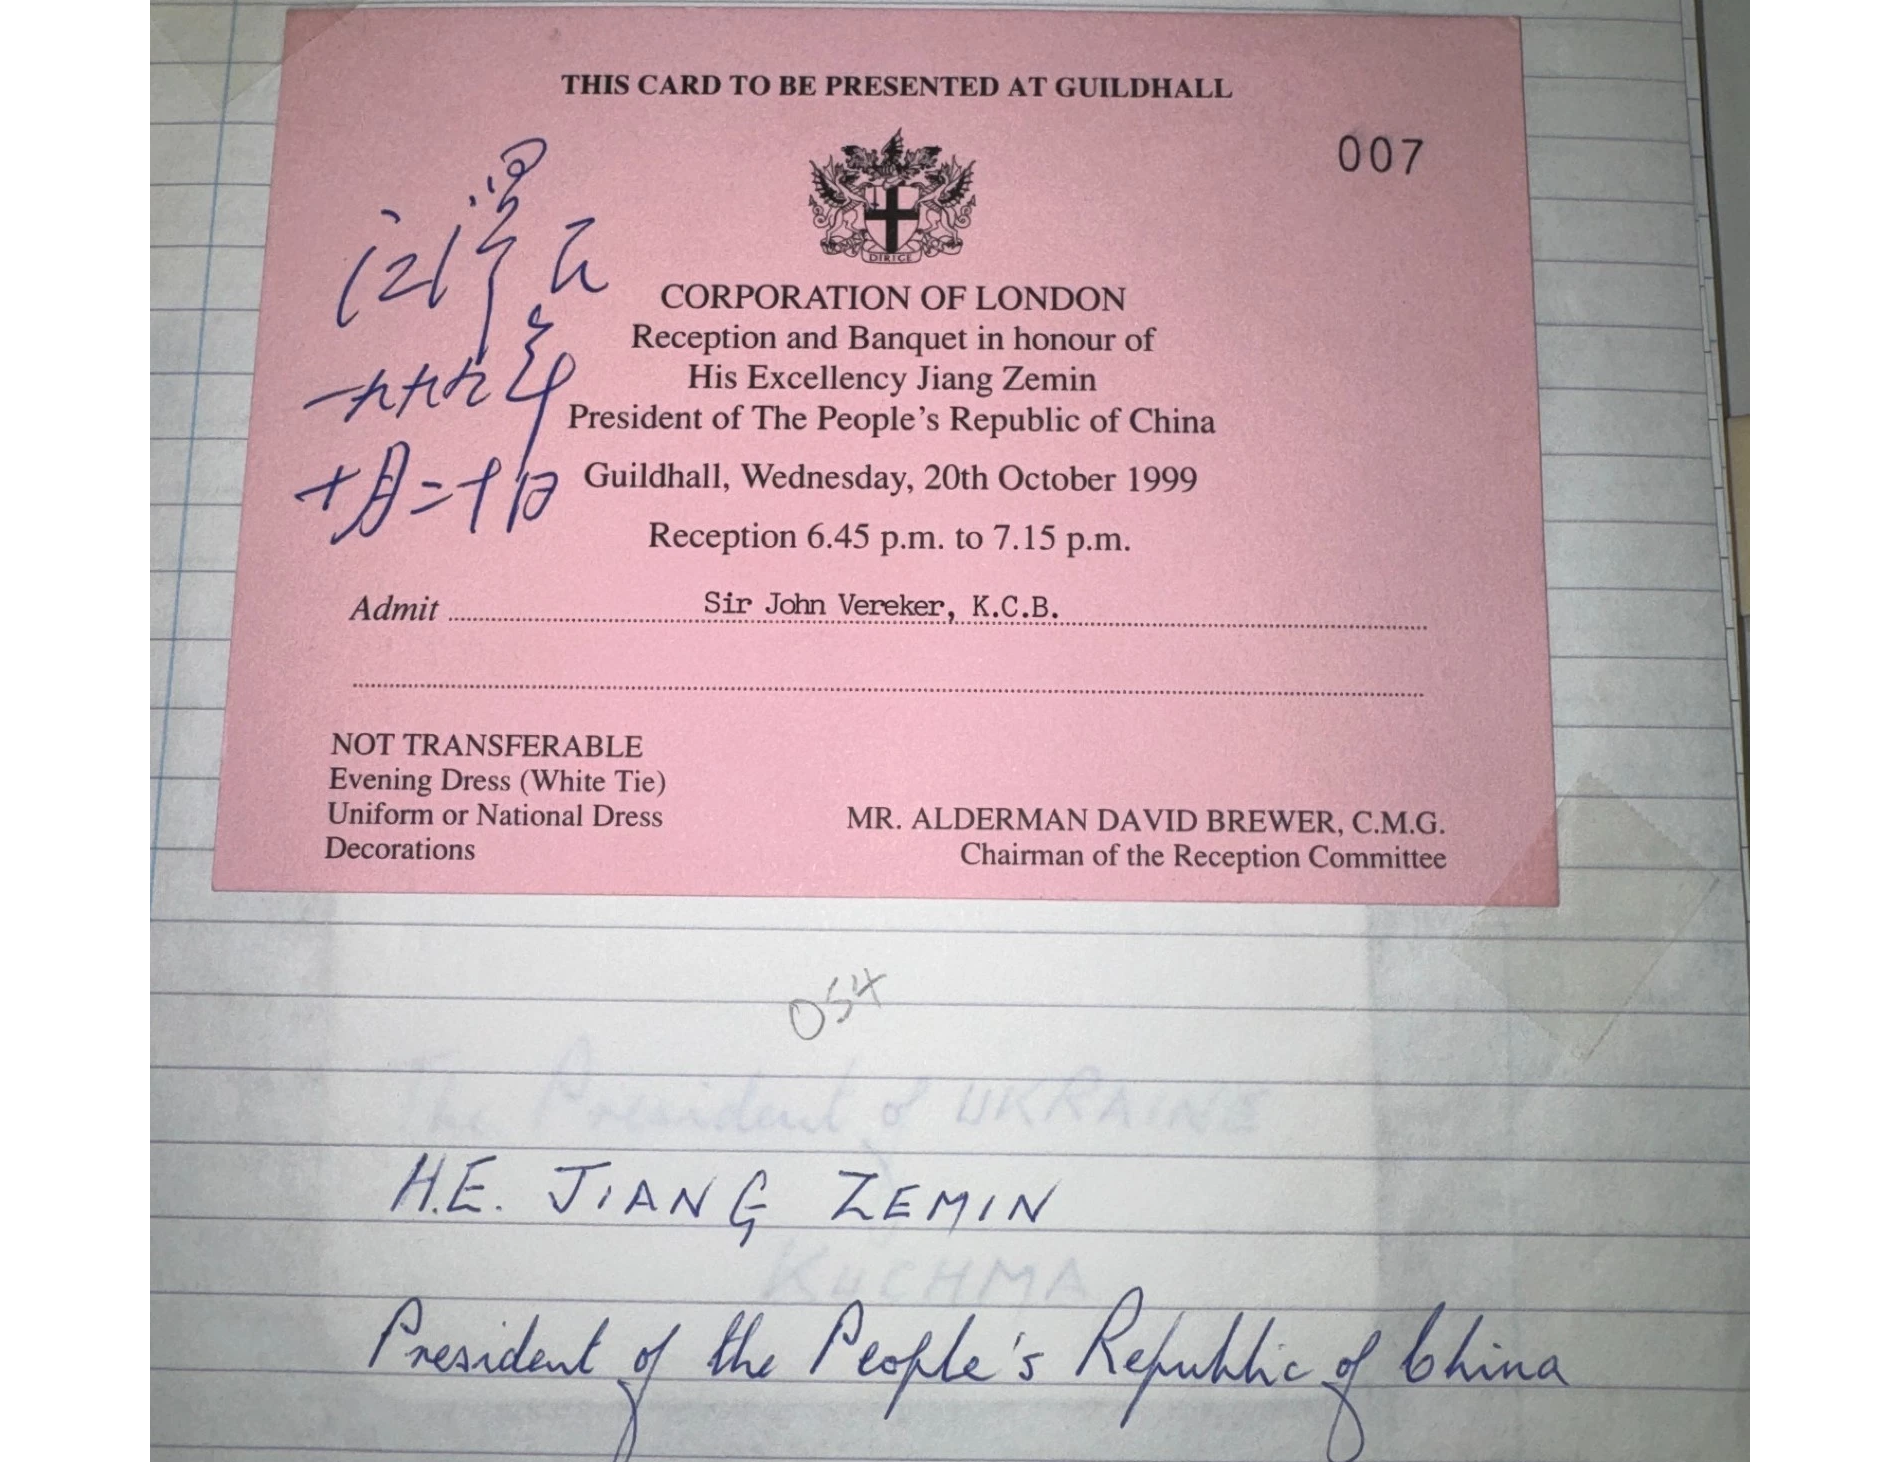 THIS CARD TO BE PRESENTED AT GUILDHALL
007
DIRIGE
江泽民
一九九九年
十月二十日
CORPORATION OF LONDON
Reception and Banquet in honour of
His Excellency Jiang Zemin
President of The People's Republic of China
Guildhall, Wednesday, 20th October 1999
Reception 6.45 p.m. to 7.15 p.m.
Admit Sir John Vereker, K.C.B.
NOT TRANSFERABLE
Evening Dress (White Tie)
Uniform or National Dress
Decorations
MR. ALDERMAN DAVID BREWER, C.M.G.
Chairman of the Reception Committee
054
The President of UKRAINE
H.E. JIANG ZEMIN
KUCHMA
President of the People's Republic of China